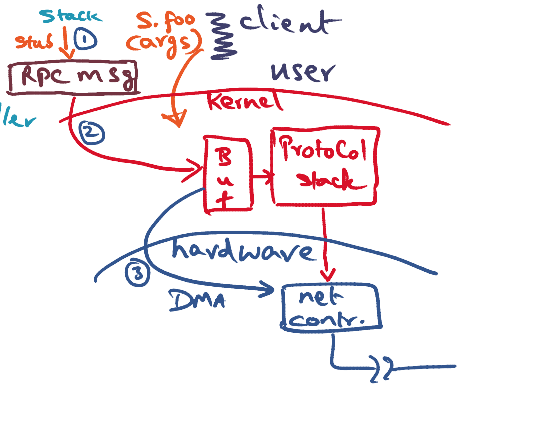 stack
stub ①
S.foo
(args)
client
RPC msg
user
kernel
ller
②
B
u
f
Protocol
stack
hardware
③
DMA
net
contr.